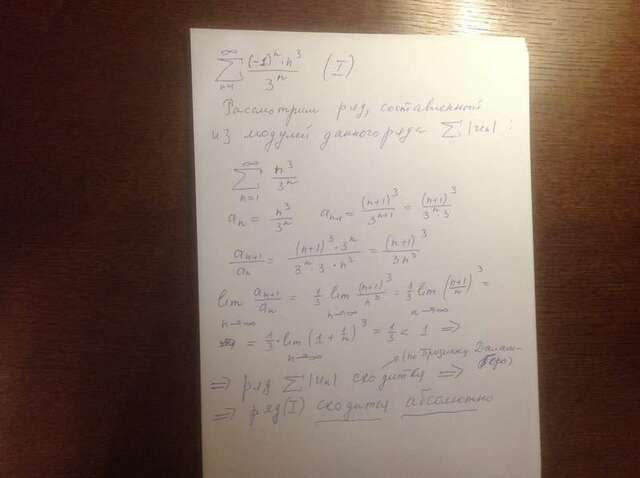 ∞∑n=1 (-1)^n · n^3 / 3^n (I)
Рассмотрим ряд, составленный
из модулей данного ряда ∑|u_n| :
∞∑n=1 n^3 / 3^n
a_n = n^3 / 3^n a_{n+1} = (n+1)^3 / 3^{n+1} = (n+1)^3 / 3^n 3
a_{n+1} / a_n = (n+1)^3 · 3^n / 3^n · 3 · n^3 = (n+1)^3 / 3n^3
lim n→∞ a_{n+1} / a_n = 1/3 lim n→∞ (n+1)^3 / n^3 = 1/3 lim n→∞ (n+1 / n)^3 =
= 1/3 · lim n→∞ (1 + 1/n)^3 = 1/3 < 1 ⇒
(по признаку Даламбера)
⇒ ряд ∑|u_n| сходится ⇒
⇒ ряд (I) сходится абсолютно